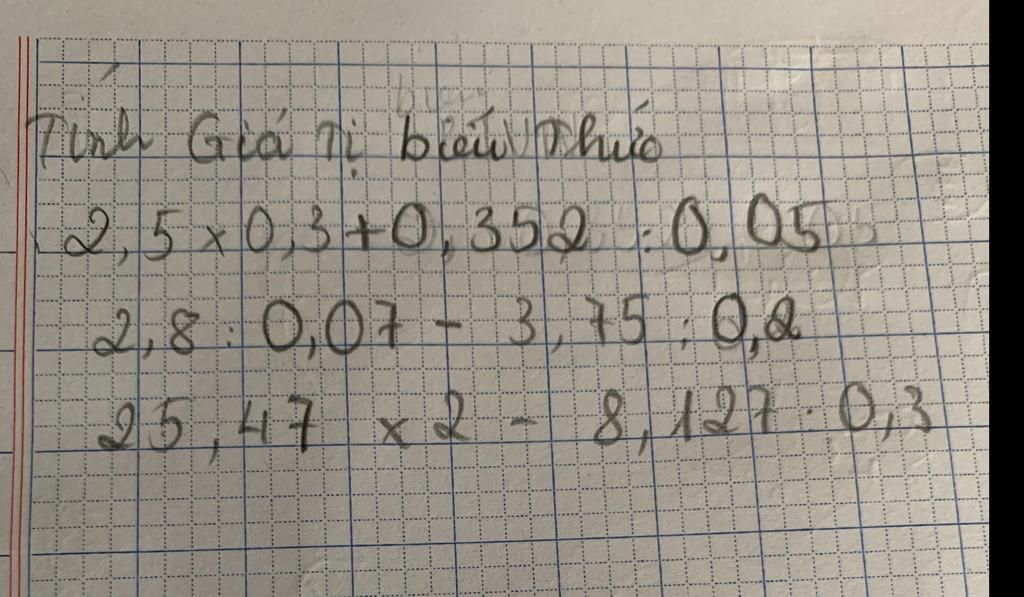 Tính Giá Tị biểu Thức
2,5 x 0,3 + 0,352 : 0,05
2,8 : 0,07 - 3,75 : 0,2
25,47 x 2 - 8,127 : 0,3